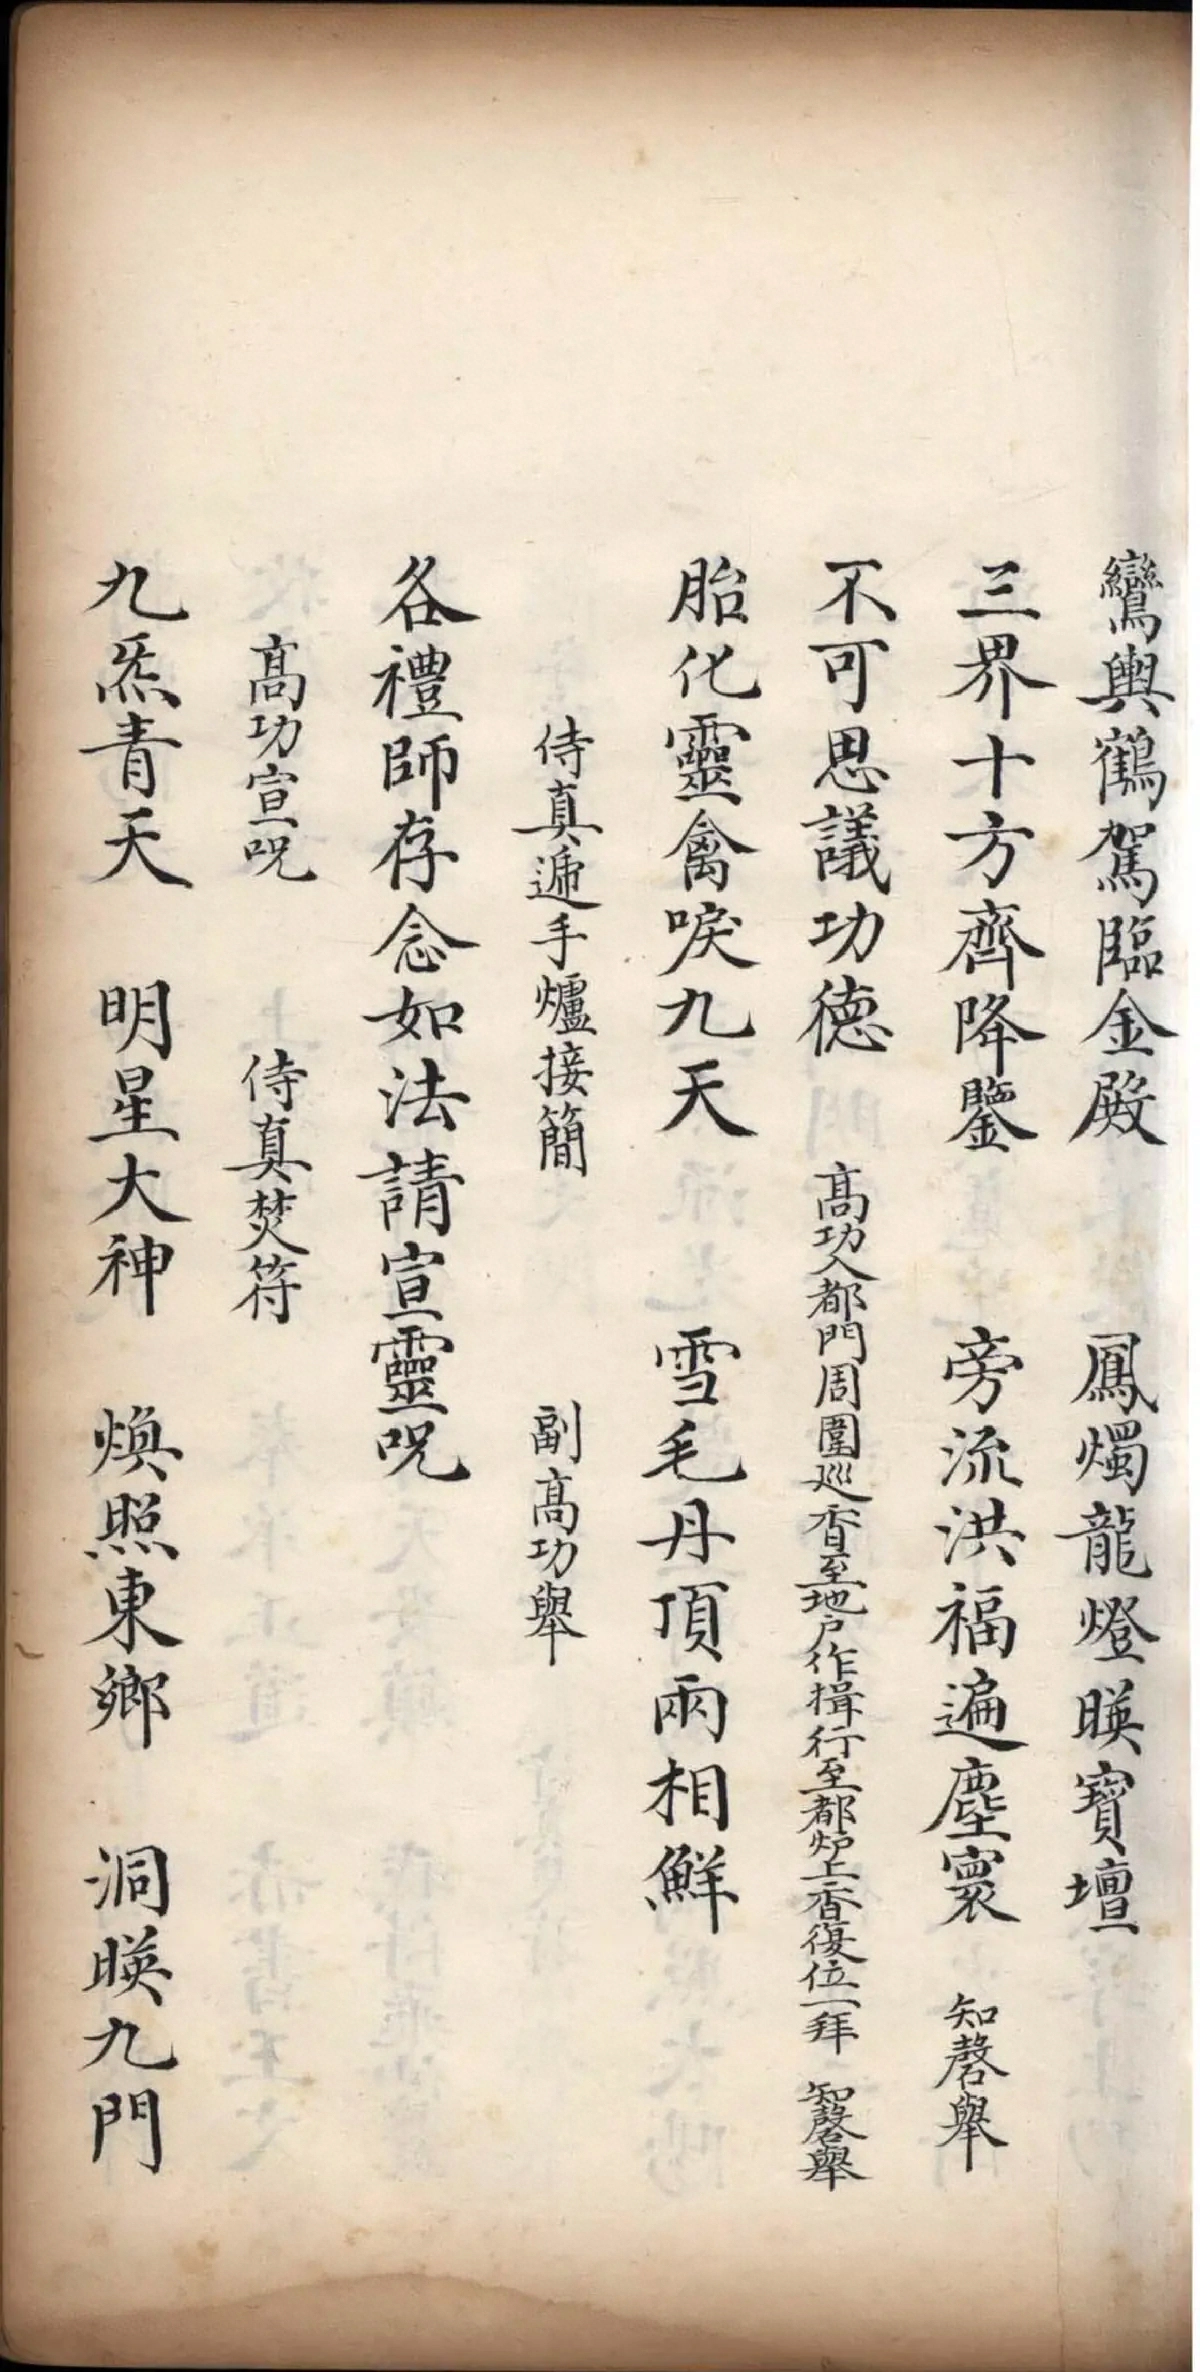 鸞輿鶴駕臨金殿　鳳燭龍燈暎寶壇
三界十方齊降鑒　旁流洪福遍塵寰　知磬舉
不可思議功德　髙功入都門周圍巡香至地户作揖行至都炉上香復位一拜　知磬舉
胎化靈禽唳九天　雪毛丹頂兩相鮮
侍真遞手爐接簡　副髙功舉
各禮師存念如法請宣靈呪
髙功宣呪　侍真焚符
九炁青天　明星大神　煥照東鄉　洞暎九門